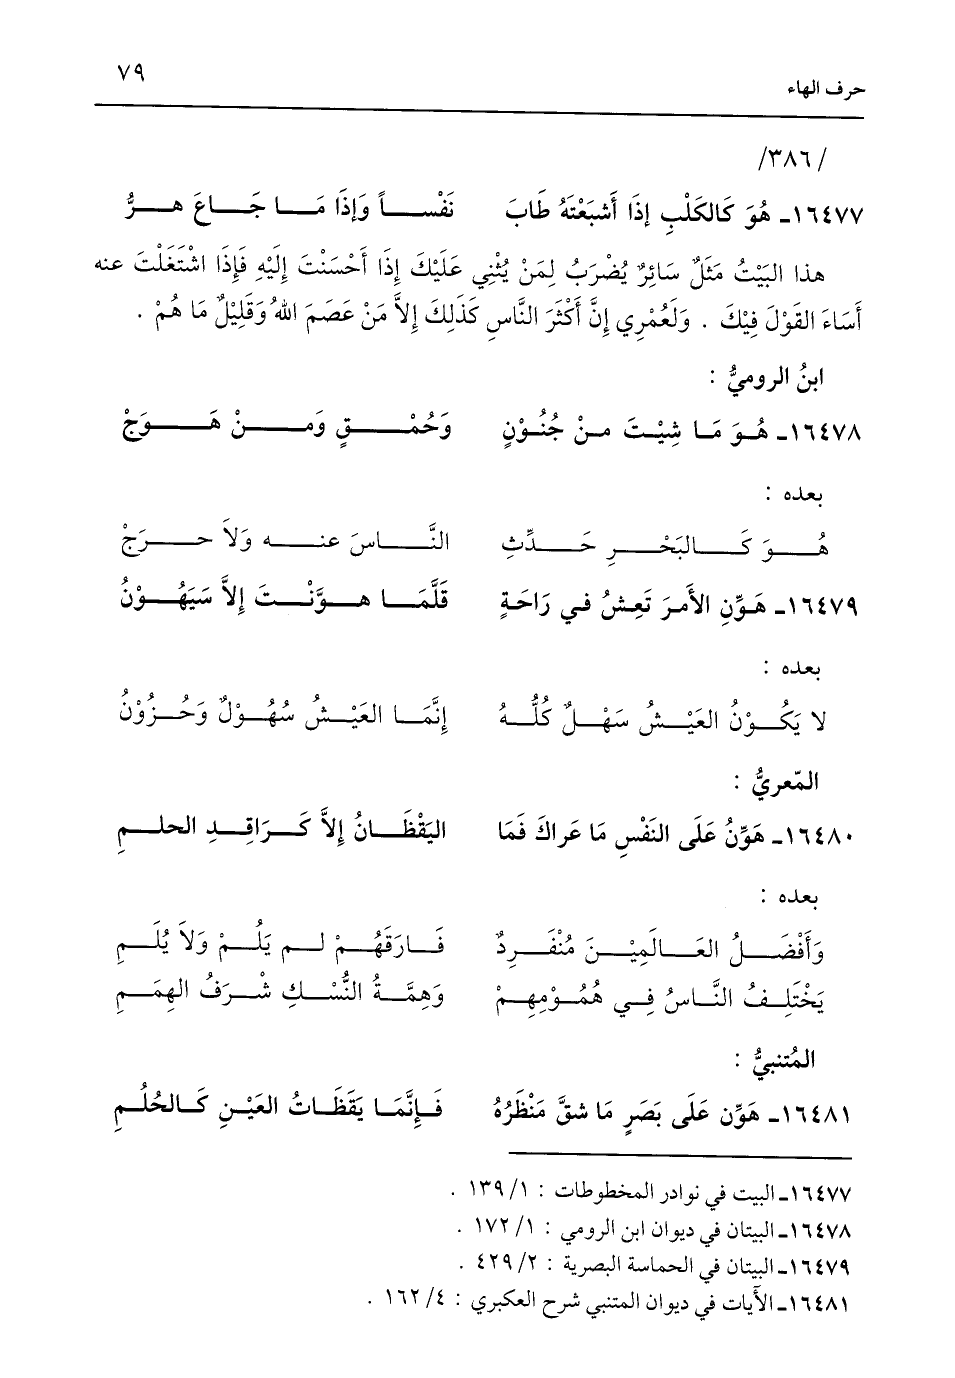 حرف الهاء ٧٩
/٣٨٦/
١٦٤٧٧ـ هُوَ كَالكَلْبِ إذَا أَشبَعْتَهُ طَابَ نَفْسـاً وَإذَا مَـا جَـاعَ هـرُّ
هذا البَيْتُ مَثَلٌ سَائِرٌ يُضْرَبُ لِمَنْ يُثْنِي عَلَيْكَ إذَا أَحْسَنْتَ إلَيْهِ فَإذَا اشْتَغَلْتَ عنه
أَسَاءَ القَوْلَ فِيْكَ . وَلَعُمْرِي إنَّ أَكْثَرَ النَّاسِ كَذَلِكَ إلاَّ مَنْ عَصَمَ اللهُ وَقَلِيْلٌ مَا هُمْ .
ابنُ الروميُّ :
١٦٤٧٨ـ هُـوَ مَـا شِيْـتَ مـنْ جُنُـوْنٍ وَحُمْـقٍ وَمـنْ هَـوَجْ
بعده :
هُـوَ كَـالبَحْـرِ حَـدِّثِ النَّـاسَ عنـه وَلاَ حـرَجْ
١٦٤٧٩ـ هَـوِّنِ الأَمـرَ تَعِـشُ فـي رَاحَـةٍ قَلَّمَـا هـوَّنْـتَ إلاَّ سَيَهُـوْنُ
بعده :
لا يَكُـوْنُ العَيْـشُ سَهْـلٌ كُلُّـهُ إنَّمَـا العَيْـشُ سُهُـوْلٌ وَحُـزُوْنُ
المّعريُّ :
١٦٤٨٠ـ هَوِّنُ عَلَى النَفْسِ مَا عَراكَ فَمَا اليَقْظَـانُ إلاَّ كَـرَاقِـدِ الحلـمِ
بعده :
وَأَفْضَـلُ العَـالَمِيْـنَ مُنْفَـرِدٌ فَـارَقَهُـمْ لـم يَلُـمْ وَلاَ يُلَـمِ
يَخْتَلِـفُ النَّـاسُ فِـي هُمُـوْمِهِـمْ وَهِمَّـةُ النُّسْـكِ شْـرَفُ الهِمَـمِ
المُتنبيُّ :
١٦٤٨١ـ هَوِّن عَلَى بَصَرٍ مَا شقَّ مَنْظَرُهُ فَـإِنَّمَـا يَقَظَـاتُ العَيْـنِ كَـالحُلُـمِ
١٦٤٧٧ـ البيت في نوادر المخطوطات : ١/ ١٣٩ .
١٦٤٧٨ـ البيتان في ديوان ابن الرومي : ١/ ١٧٢ .
١٦٤٧٩ـ البيتان في الحماسة البصرية : ٢/ ٤٢٩ .
١٦٤٨١ـ الأبيات في ديوان المتنبي شرح العكبري : ٤/ ١٦٢ .